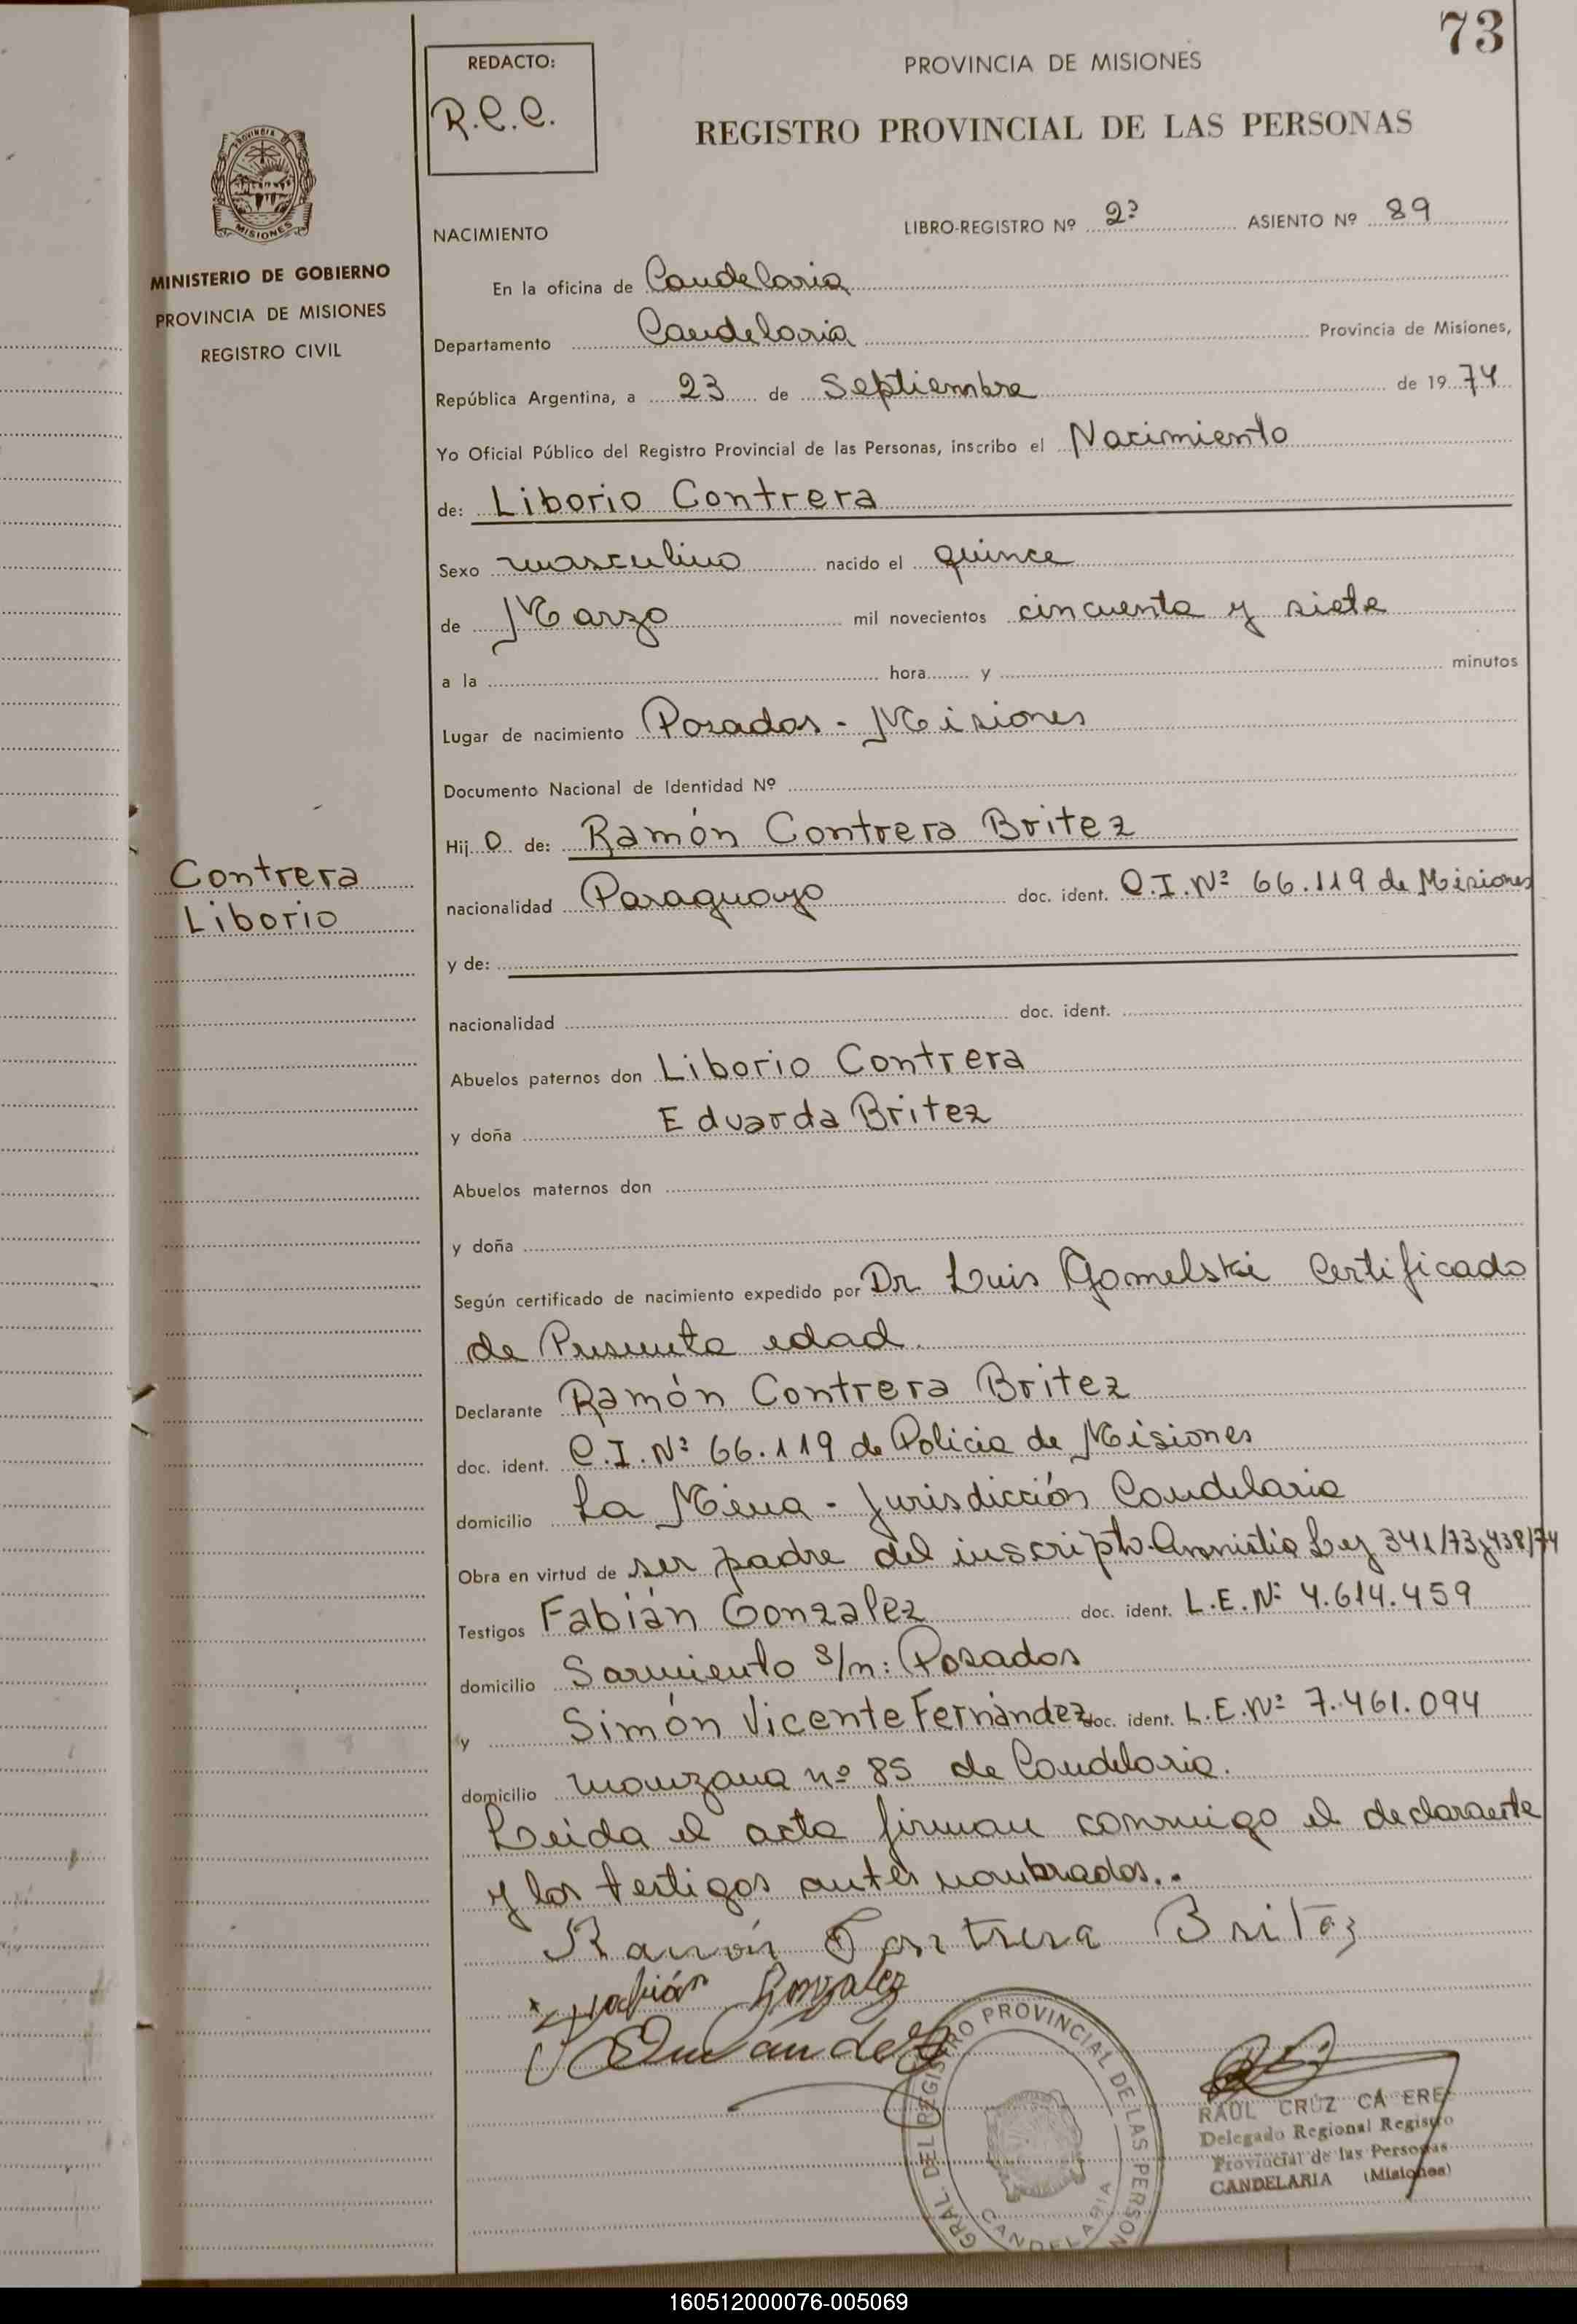 73
REDACTO:
R.C.C.
PROVINCIA DE MISIONES
REGISTRO PROVINCIAL DE LAS PERSONAS
PROVINCIA
MISIONES
MINISTERIO DE GOBIERNO
PROVINCIA DE MISIONES
REGISTRO CIVIL
NACIMIENTO LIBRO-REGISTRO Nº 2º ASIENTO Nº 89
En la oficina de Candelaria
Departamento Candelaria Provincia de Misiones,
República Argentina, a 23 de Septiembre de 1974
Yo Oficial Público del Registro Provincial de las Personas, inscribo el Nacimiento
de: Liborio Contrera
Sexo masculino nacido el quince
de Marzo mil novecientos cincuenta y siete
a la hora y minutos
Lugar de nacimiento Posadas - Misiones
Documento Nacional de Identidad Nº
Hijo de: Ramón Contrera Britez
Contrera
Liborio
nacionalidad Paraguayo doc. ident. C.I.Nº 66.119 de Misiones
y de:
nacionalidad doc. ident.
Abuelos paternos don Liborio Contrera
y doña Eduarda Britez
Abuelos maternos don
y doña
Según certificado de nacimiento expedido por Dr Luis Gomelski Certificado
de Presunta edad.
Declarante Ramón Contrera Britez
doc. ident. C.I.Nº 66.119 de Policia de Misiones
domicilio La Mina - Jurisdicción Candelaria
Obra en virtud de ser padre del inscripto. Amnistia Ley 341/73 y 438/74
Testigos Fabián Gonzalez doc. ident. L.E.Nº 4.614.459
domicilio Sarmiento S/n: Posadas
y Simón Vicente Fernández doc. ident. L.E.Nº 7.461.094
domicilio manzana nº 85 de Candelaria.
Leida el acta firman conmigo el declarante
y los testigos antes nombrados..
Ramón Contrera Britez
Fabián Gonzalez
GRAL. DEL REGISTRO PROVINCIAL DE LAS PERSON
CANDELARIA
RAUL CRUZ CA ERE
Delegado Regional Registro
Provincial de las Personas
CANDELARIA (Misiones)
160512000076-005069